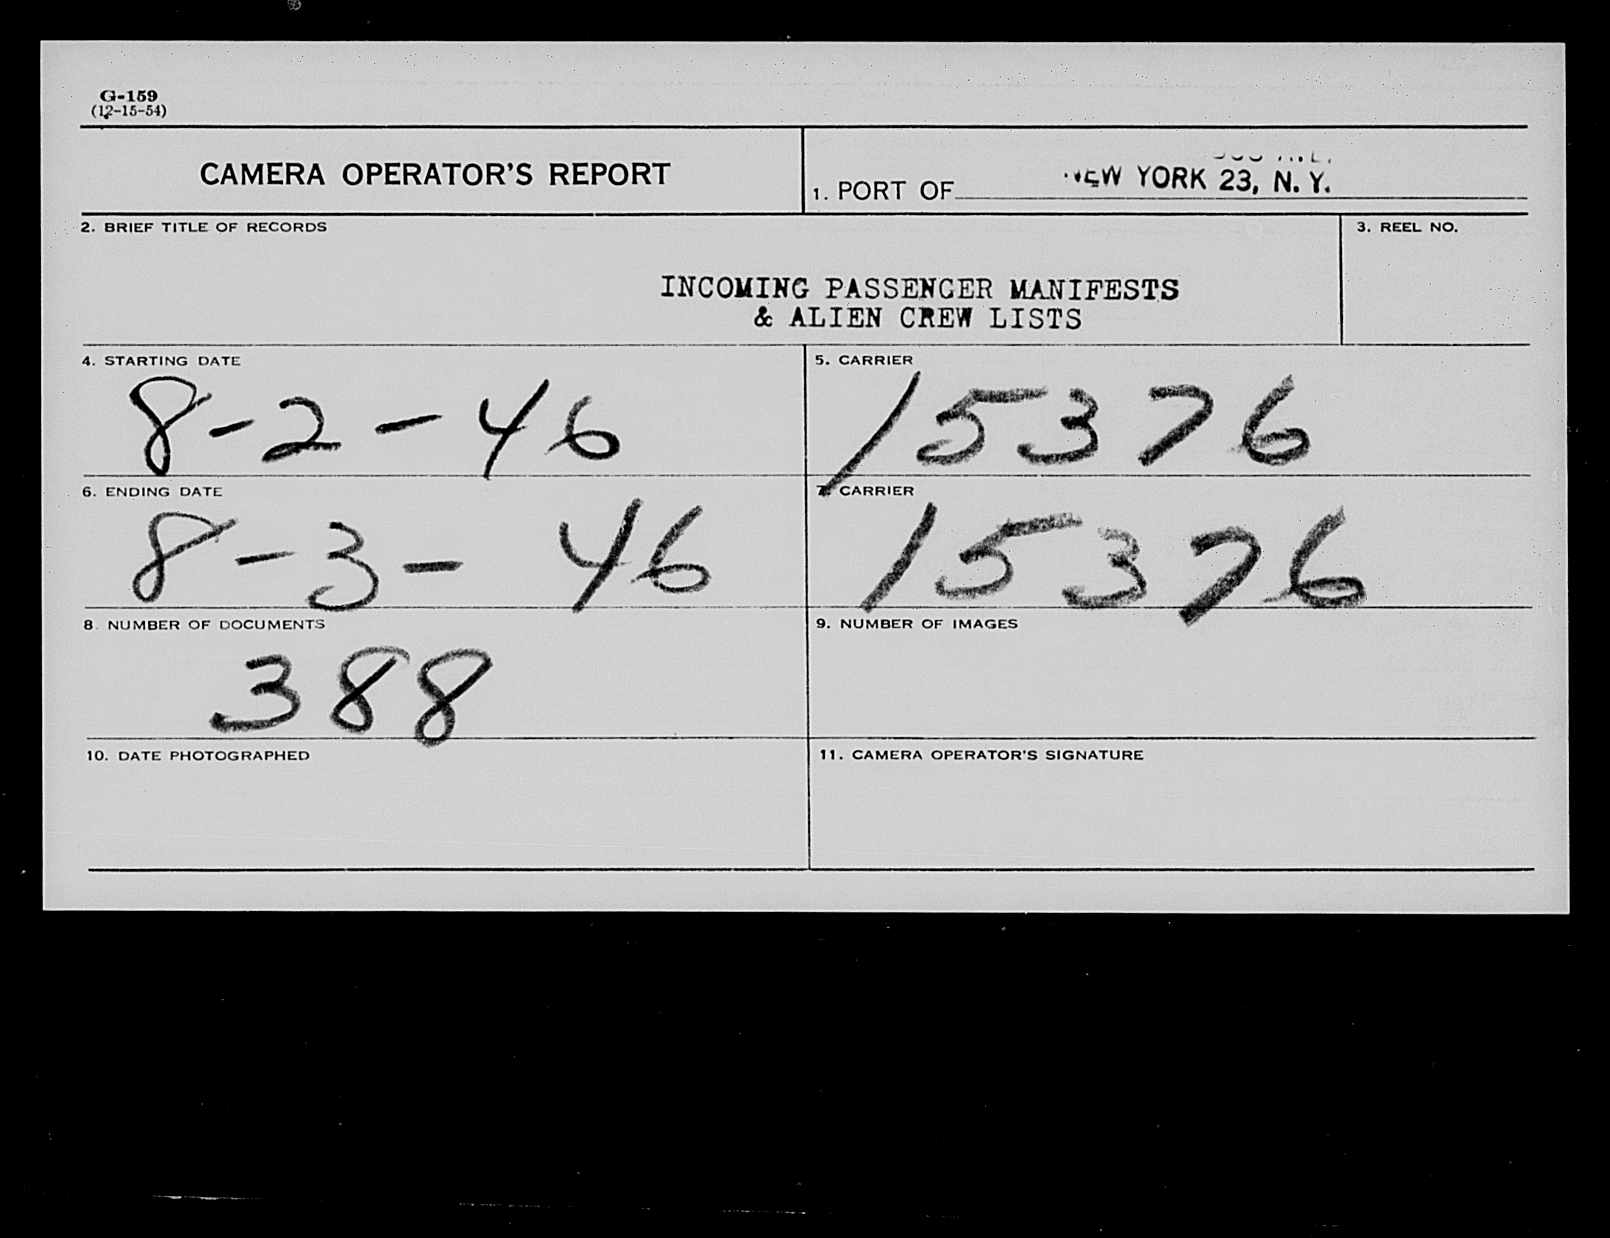 G-159
(12-15-54)
CAMERA OPERATOR'S REPORT
1. PORT OF NEW YORK 23, N. Y.
2. BRIEF TITLE OF RECORDS
3. REEL NO.
INCOMING PASSENGER MANIFESTS
& ALIEN CREW LISTS
4. STARTING DATE
8-2-46
5. CARRIER
15376
6. ENDING DATE
8-3-46
7. CARRIER
15376
8. NUMBER OF DOCUMENTS
388
9. NUMBER OF IMAGES
10. DATE PHOTOGRAPHED
11. CAMERA OPERATOR'S SIGNATURE